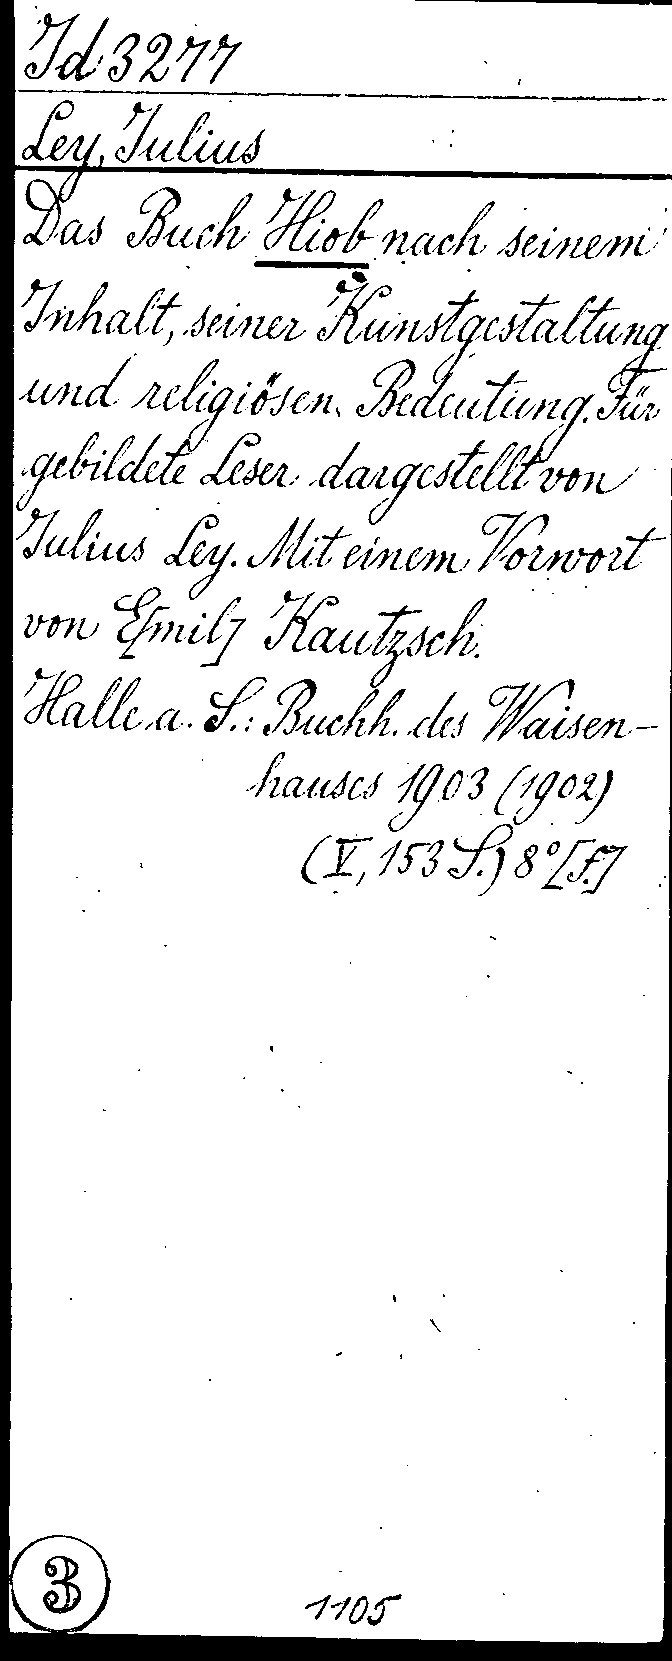 Id 3277
Ley, Julius
Das Buch Hiob nach seinem
Inhalt, seiner Kunstgestaltung
und religiösen Bedeutung. Für
gebildete Leser dargestellt von
Julius Ley. Mit einem Vorwort
von E[mil] Kautzsch.
Halle a. S.: Buchh. des Waisen-
hauses 1903 (1902)
(V, 153 S.) 8° [f.]
3
1105